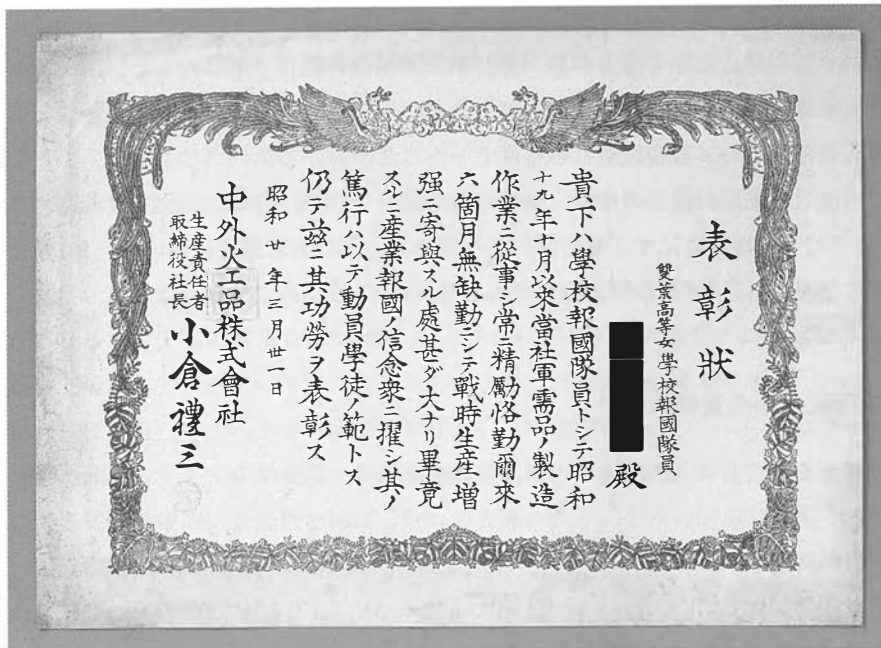 表彰狀
雙葉高等女學校報國隊員
殿
貴下ハ學校報國隊員トシテ昭和
十九年十月以來當社軍需品ノ製造
作業ニ從事シ常ニ精勵恪勤爾來
六箇月無缺勤ニシテ戰時生産增
强ニ寄與スル處甚ダ大ナリ畢竟
スルニ產業報國ノ信念衆ニ擢シ其ノ
篤行ハ以テ動員學徒ノ範トス
仍テ玆ニ其功勞ヲ表彰ス
昭和廿年三月卅一日
中外火工品株式會社
生産責任者
取締役社長
小倉禮三